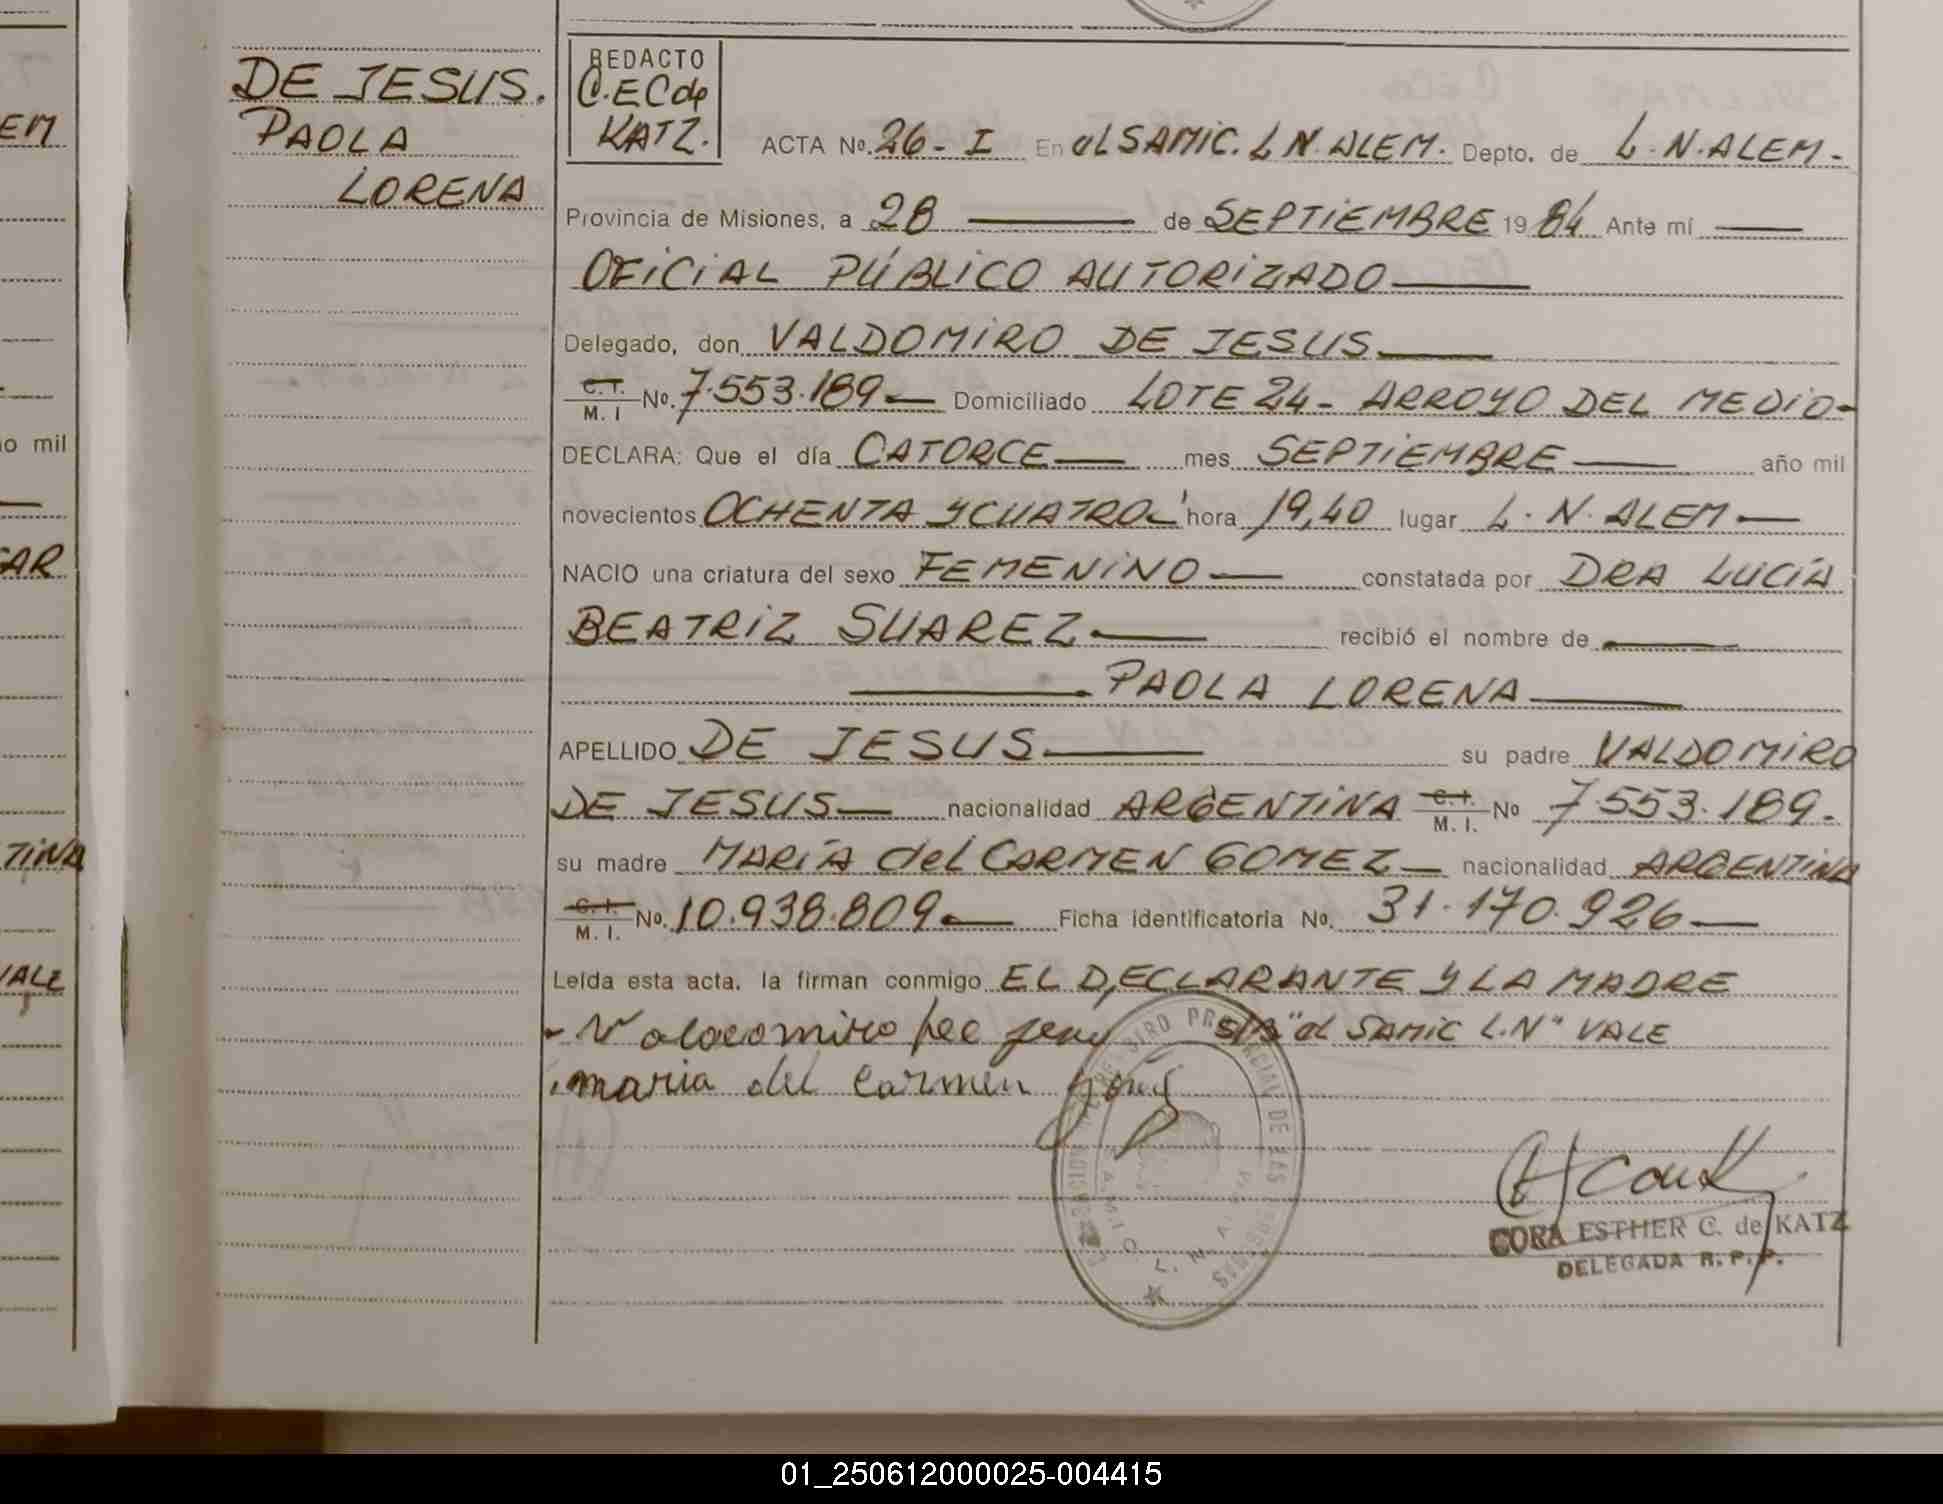 DE JESUS.
PAOLA
LORENA
REDACTO
C.E C de
KATZ.
ACTA No. 26 - I En el SAMIC. L N. ALEM. Depto. de L. N. ALEM -
Provincia de Misiones, a 28 de SEPTIEMBRE 19 84 Ante mí
OFICIAL PÚBLICO AUTORIZADO
Delegado, don VALDOMIRO DE JESUS
C. I.
M. I No. 7.553.189 Domiciliado LOTE 24 - ARROYO DEL MEDIO -
DECLARA: Que el día CATORCE mes SEPTIEMBRE año mil
novecientos OCHENTA Y CUATRO hora 19,40 lugar L. N. ALEM
NACIO una criatura del sexo FEMENINO constatada por DRA LUCÍA
BEATRIZ SUAREZ recibió el nombre de
PAOLA LORENA
APELLIDO DE JESUS su padre VALDOMIRO
DE JESUS nacionalidad ARGENTINA C. I. M. I. No 7 553.189.
su madre MARÍA del CARMEN GOMEZ nacionalidad ARGENTINA
C. I.
M. I. No. 10.938.809 Ficha identificatoria No. 31.170.926
Leída esta acta, la firman conmigo EL DECLARANTE Y LA MADRE
S/B "el SAMIC L.N" VALE
maria del Carmen
CORA ESTHER C. de KATZ
DELEGADA R. P. P.
EM
o mil
AR
TINA
VALE
01_250612000025-004415